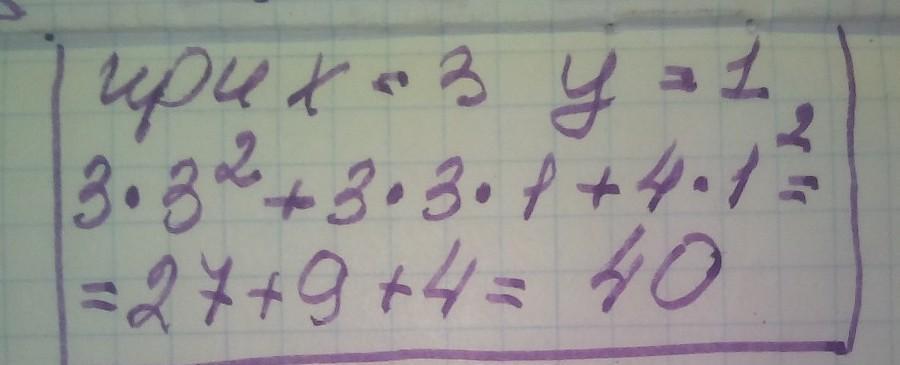 при x = 3 y = 1
3·3²+3·3·1+4·1²=
=27+9+4= 40